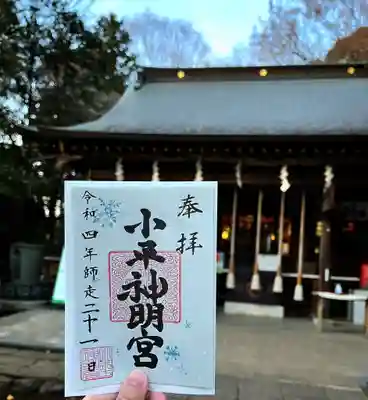 奉拝
小平神明宮
令和四年師走二十一日